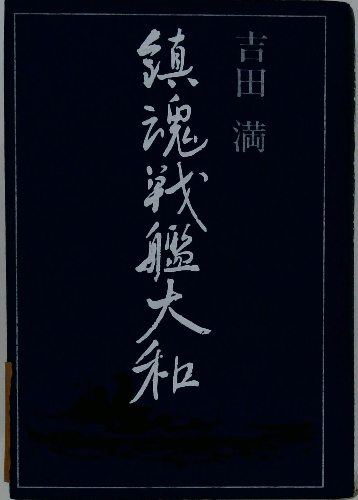 吉田 満
鎮魂戦艦大和